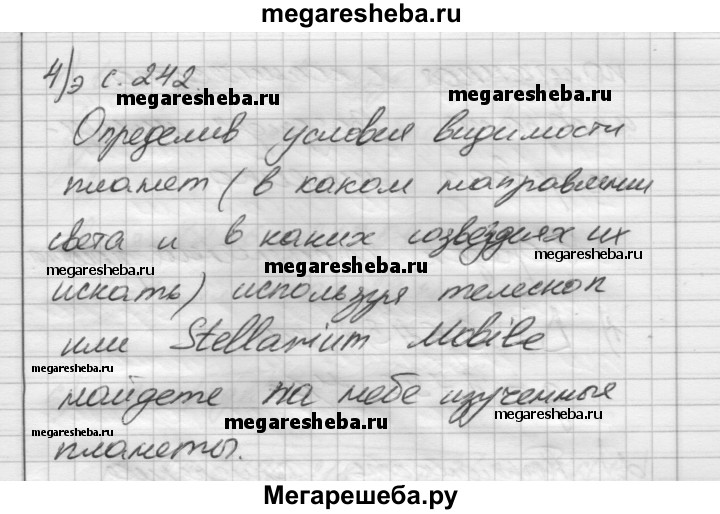 megaresheba.ru
4) э с. 242.
megaresheba.ru
megaresheba.ru
Определив условия видимости
планет (в каком направлении
света и в каких созвездиях их
megaresheba.ru
megaresheba.ru
megaresheba.ru
искать) используя телескоп
или Stellarium Mobile
megaresheba.ru
найдете на небе изученные
megaresheba.ru
megaresheba.ru
megaresheba.ru
планеты.
Мегарешеба.ру